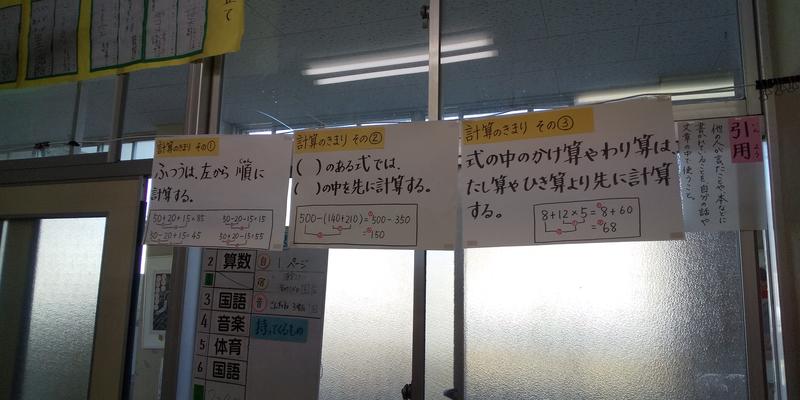 計算のきまり その①
ふつうは、左から順に
計算する。
50+20+15=85
50-20-15=15
50-20+15=45
50+20-15=55
計算のきまり その②
( )のある式では、
( )の中を先に計算する。
500-(140+210)=500-350
=150
計算のきまり その③
式の中のかけ算やわり算は、
たし算やひき算より先に計算
する。
8+12×5=8+60
=68
引用
他の人が言ったことや、本などに
書かれていることを、自分の話や
文章の中で使うこと。
2 算数
3 国語
4 音楽
5 体育
6 国語
1ページ
持ってくるもの